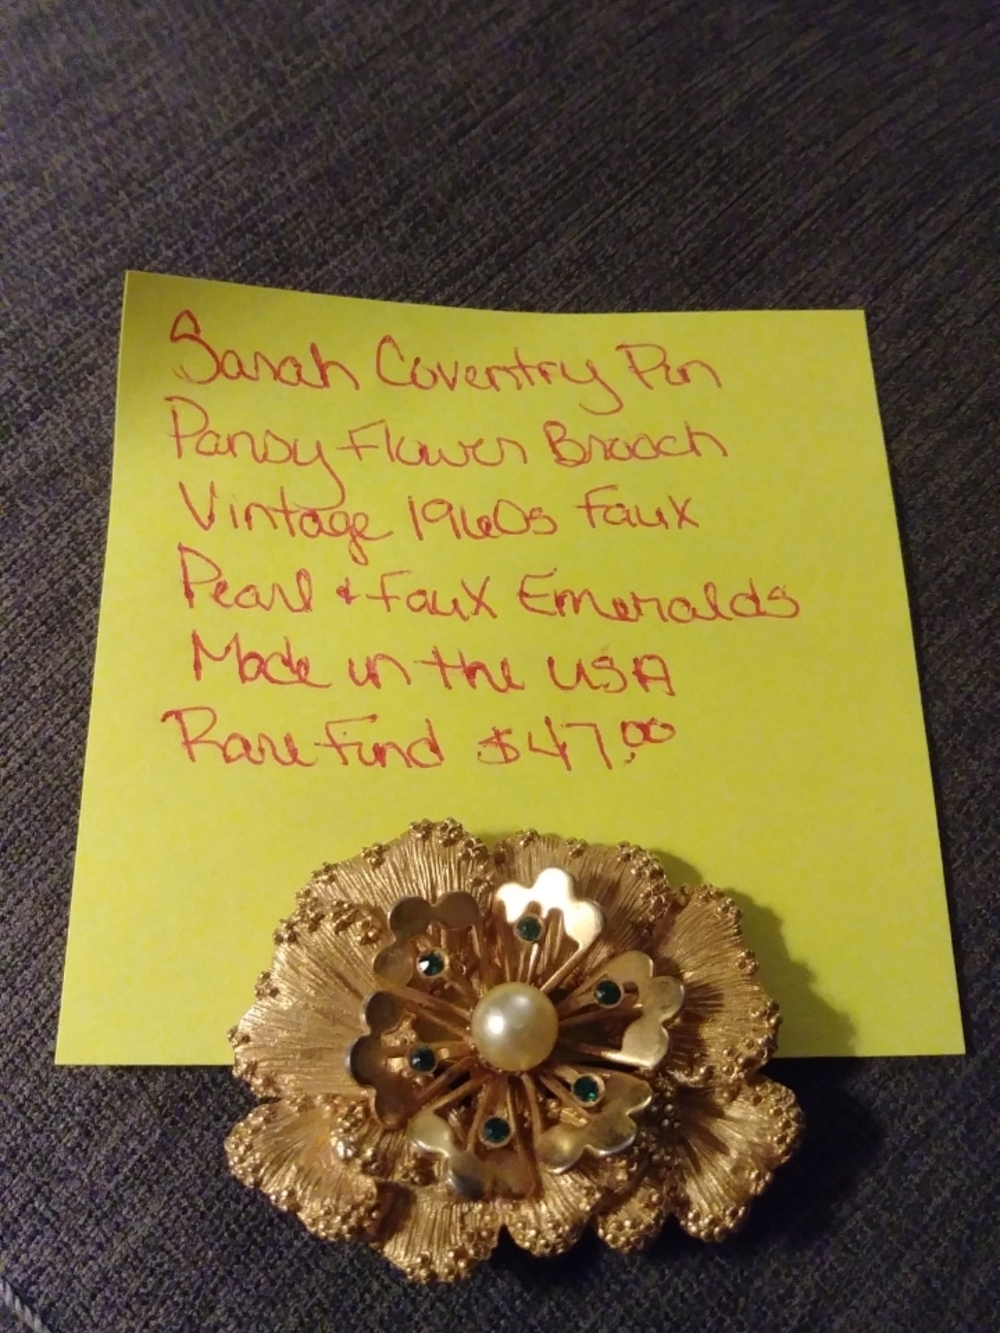 Sarah Coventry Pin
Pansy Flower Brooch
Vintage 1960s Faux
Pearl & Faux Emeralds
Made in the USA
Rare Find $47.00